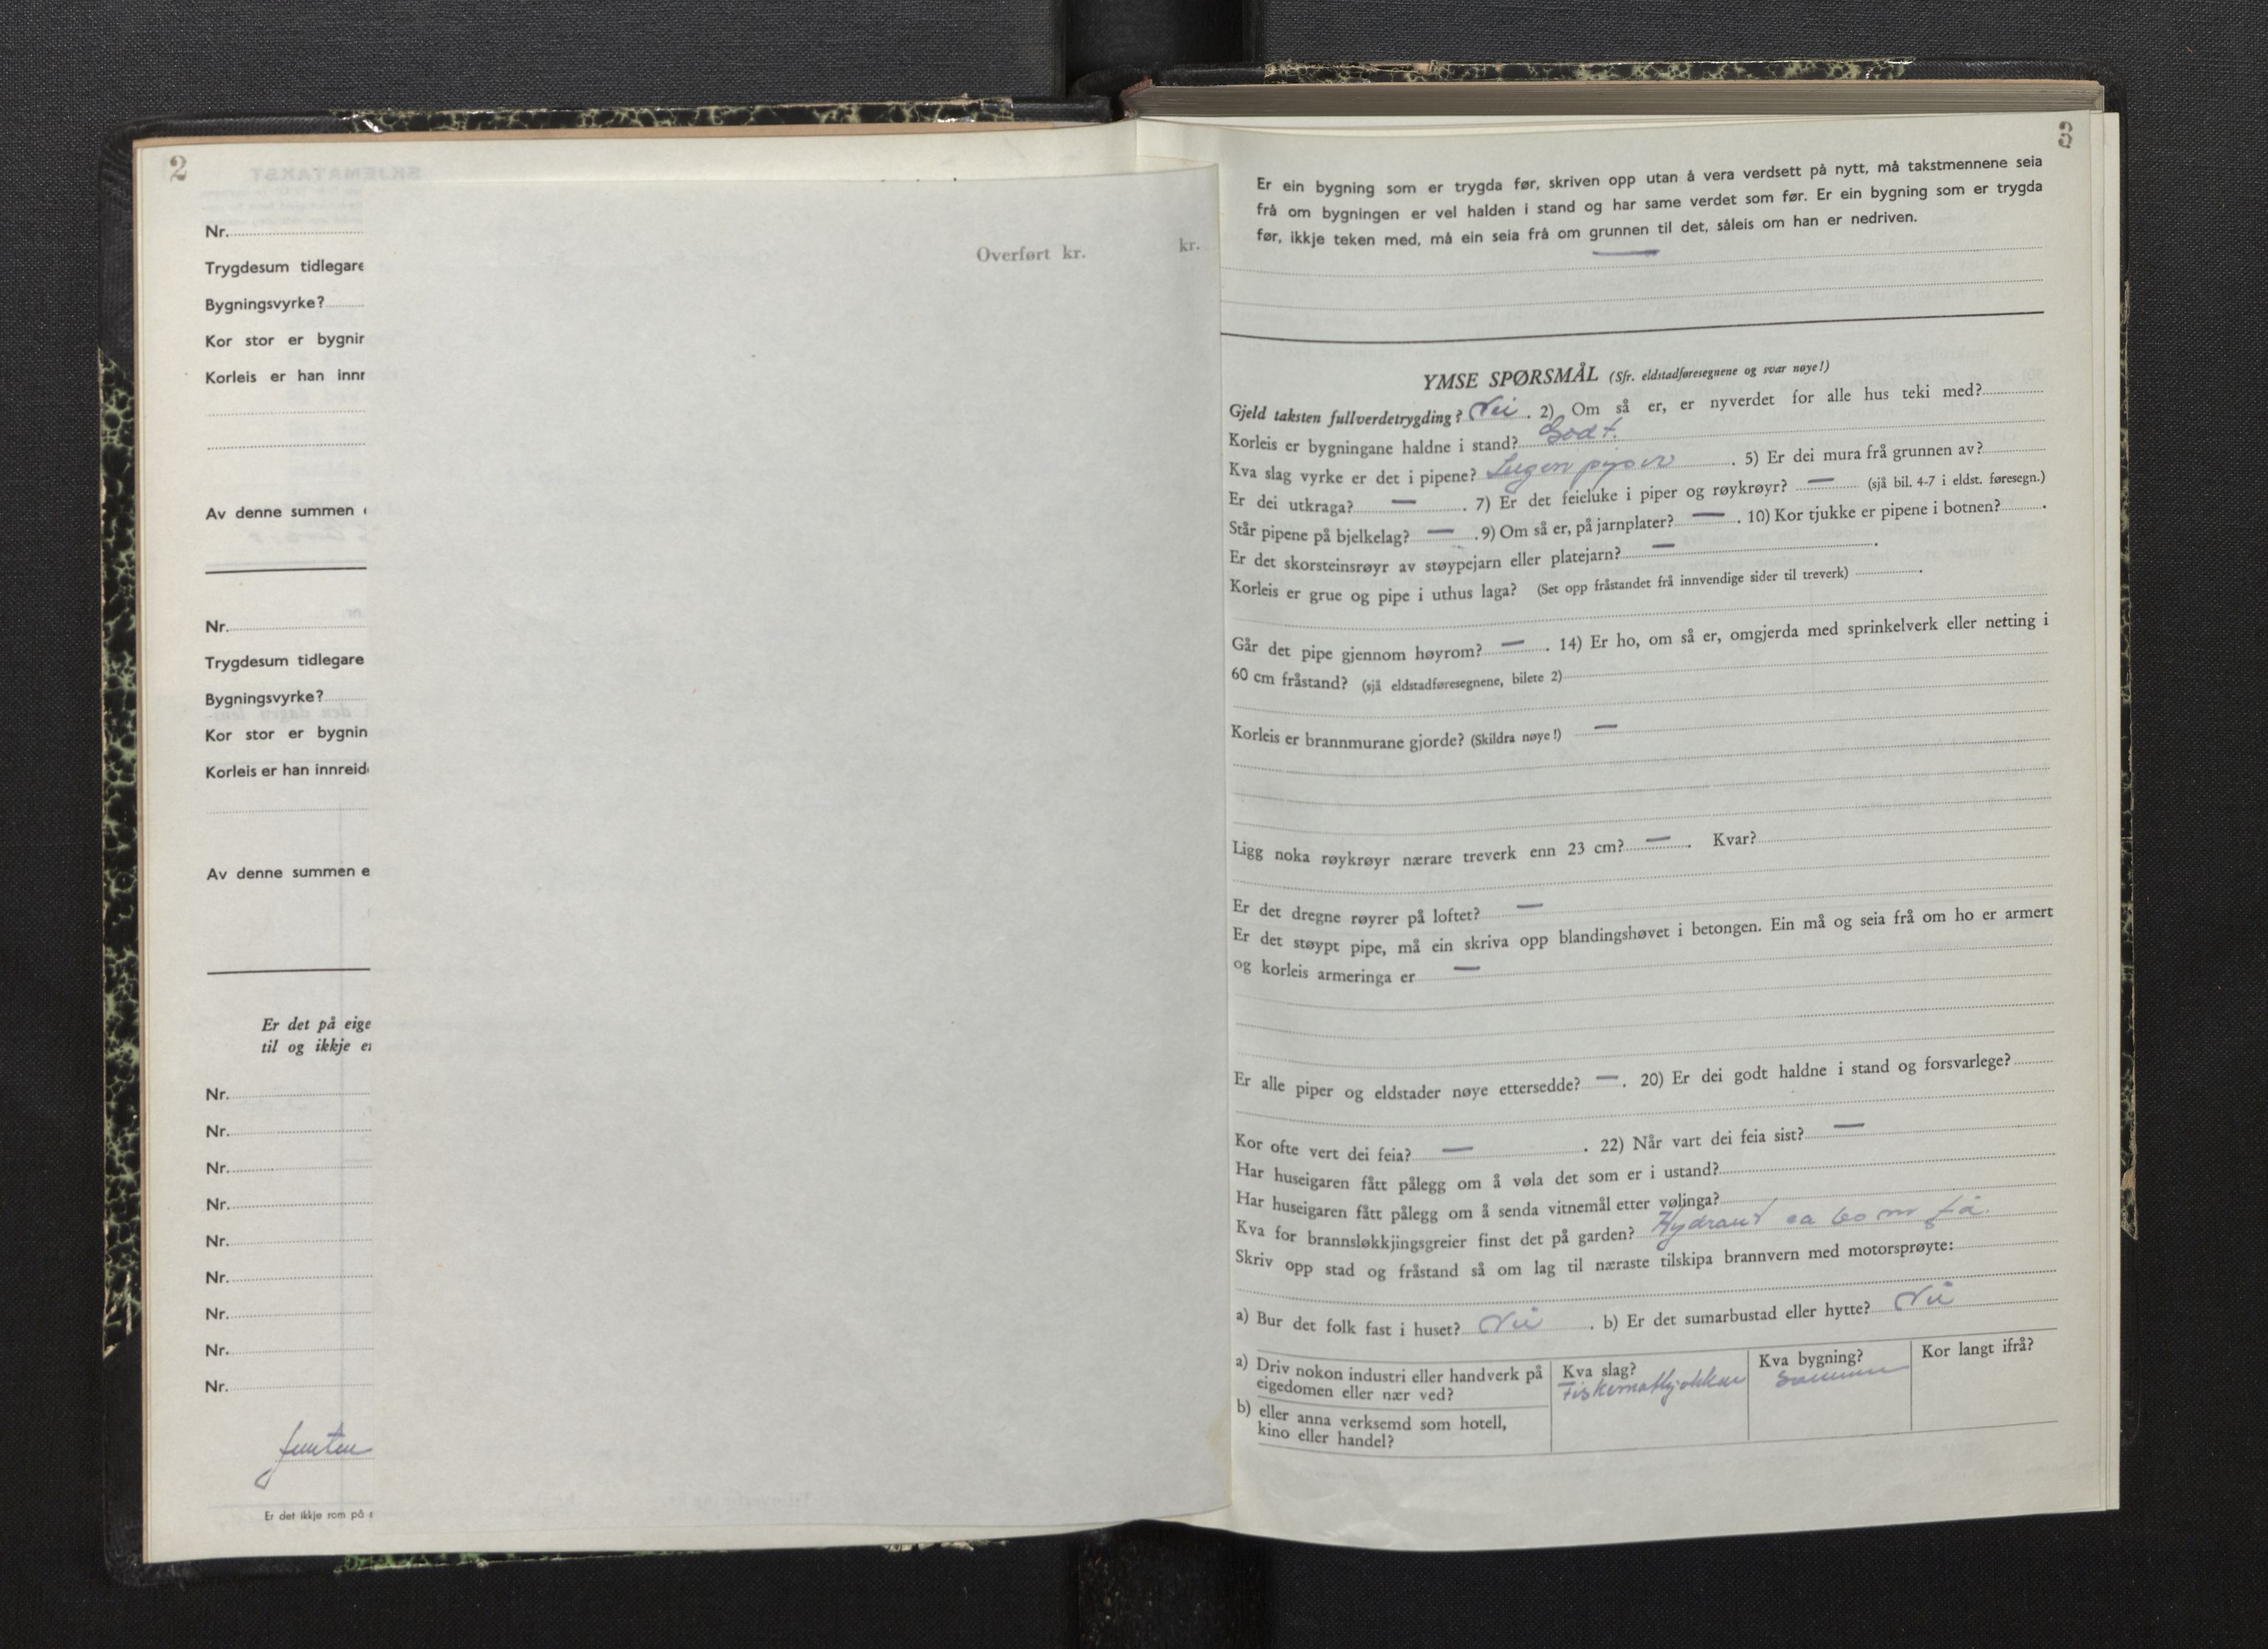 2
Nr.
Trygdesum tidlegare
Bygningsvyrke?
Kor stor er bygnin
Korleis er han innr
Av denne summen
Nr.
Trygdesum tidlegare
Bygningsvyrke?
Kor stor er bygnin
Korleis er han innreid
Av denne summen e
Er det på eige
til og ikkje er
Nr.
Nr.
Nr.
Nr.
Nr.
Nr.
Nr.
Nr.
Nr.
Er det ikkje rom på
Overført kr. kr.
3
Er ein bygning som er trygda før, skriven opp utan å vera verdsett på nytt, må takstmennene seia
frå om bygningen er vel halden i stand og har same verdet som før. Er ein bygning som er trygda
før, ikkje teken med, må ein seia frå om grunnen til det, såleis om han er nedriven.
—
YMSE SPØRSMÅL (Sfr. eldstadføresegnene og svar nøye!)
Gjeld taksten fullverdetrygding? Nei. 2) Om så er, er nyverdet for alle hus teki med?
Korleis er bygningane haldne i stand? Godt.
Kva slag vyrke er det i pipene? Ingen piper. 5) Er dei mura frå grunnen av?
Er dei utkraga? —. 7) Er det feieluke i piper og røykrøyr? — (sjå bil. 4-7 i eldst. føresegn.)
Står pipene på bjelkelag? —. 9) Om så er, på jarnplater? —. 10) Kor tjukke er pipene i botnen?.
Er det skorsteinsrøyr av støypejarn eller platejarn? —.
Korleis er grue og pipe i uthus laga? (Set opp fråstandet frå innvendige sider til treverk).
Går det pipe gjennom høyrom? —. 14) Er ho, om så er, omgjerda med sprinkelverk eller netting i
60 cm fråstand? (sjå eldstadføresegnene, bilete 2)
Korleis er brannmurane gjorde? (Skildra nøye!) —
Ligg noka røykrøyr nærare treverk enn 23 cm? —. Kvar?
Er det dregne røyrer på loftet? —
Er det støypt pipe, må ein skriva opp blandingshøvet i betongen. Ein må og seia frå om ho er armert
og korleis armeringa er —
Er alle piper og eldstader nøye ettersedde? —. 20) Er dei godt haldne i stand og forsvarlege?
Kor ofte vert dei feia? —. 22) Når vart dei feia sist? —
Har huseigaren fått pålegg om å vøla det som er i ustand?
Har huseigaren fått pålegg om å senda vitnemål etter vølinga?
Kva for brannsløkkjingsgreier finst det på garden? Hydrant ca 60 m frå.
Skriv opp stad og fråstand så om lag til næraste tilskipa brannvern med motorsprøyte:
a) Bur det folk fast i huset? Nei. b) Er det sumarbustad eller hytte? Nei
a) Driv nokon industri eller handverk på
eigedomen eller nær ved?
Kva slag?
Fiskematkjøkken
Kva bygning?
Samme
Kor langt ifrå?
b) eller anna verksemd som hotell,
kino eller handel?